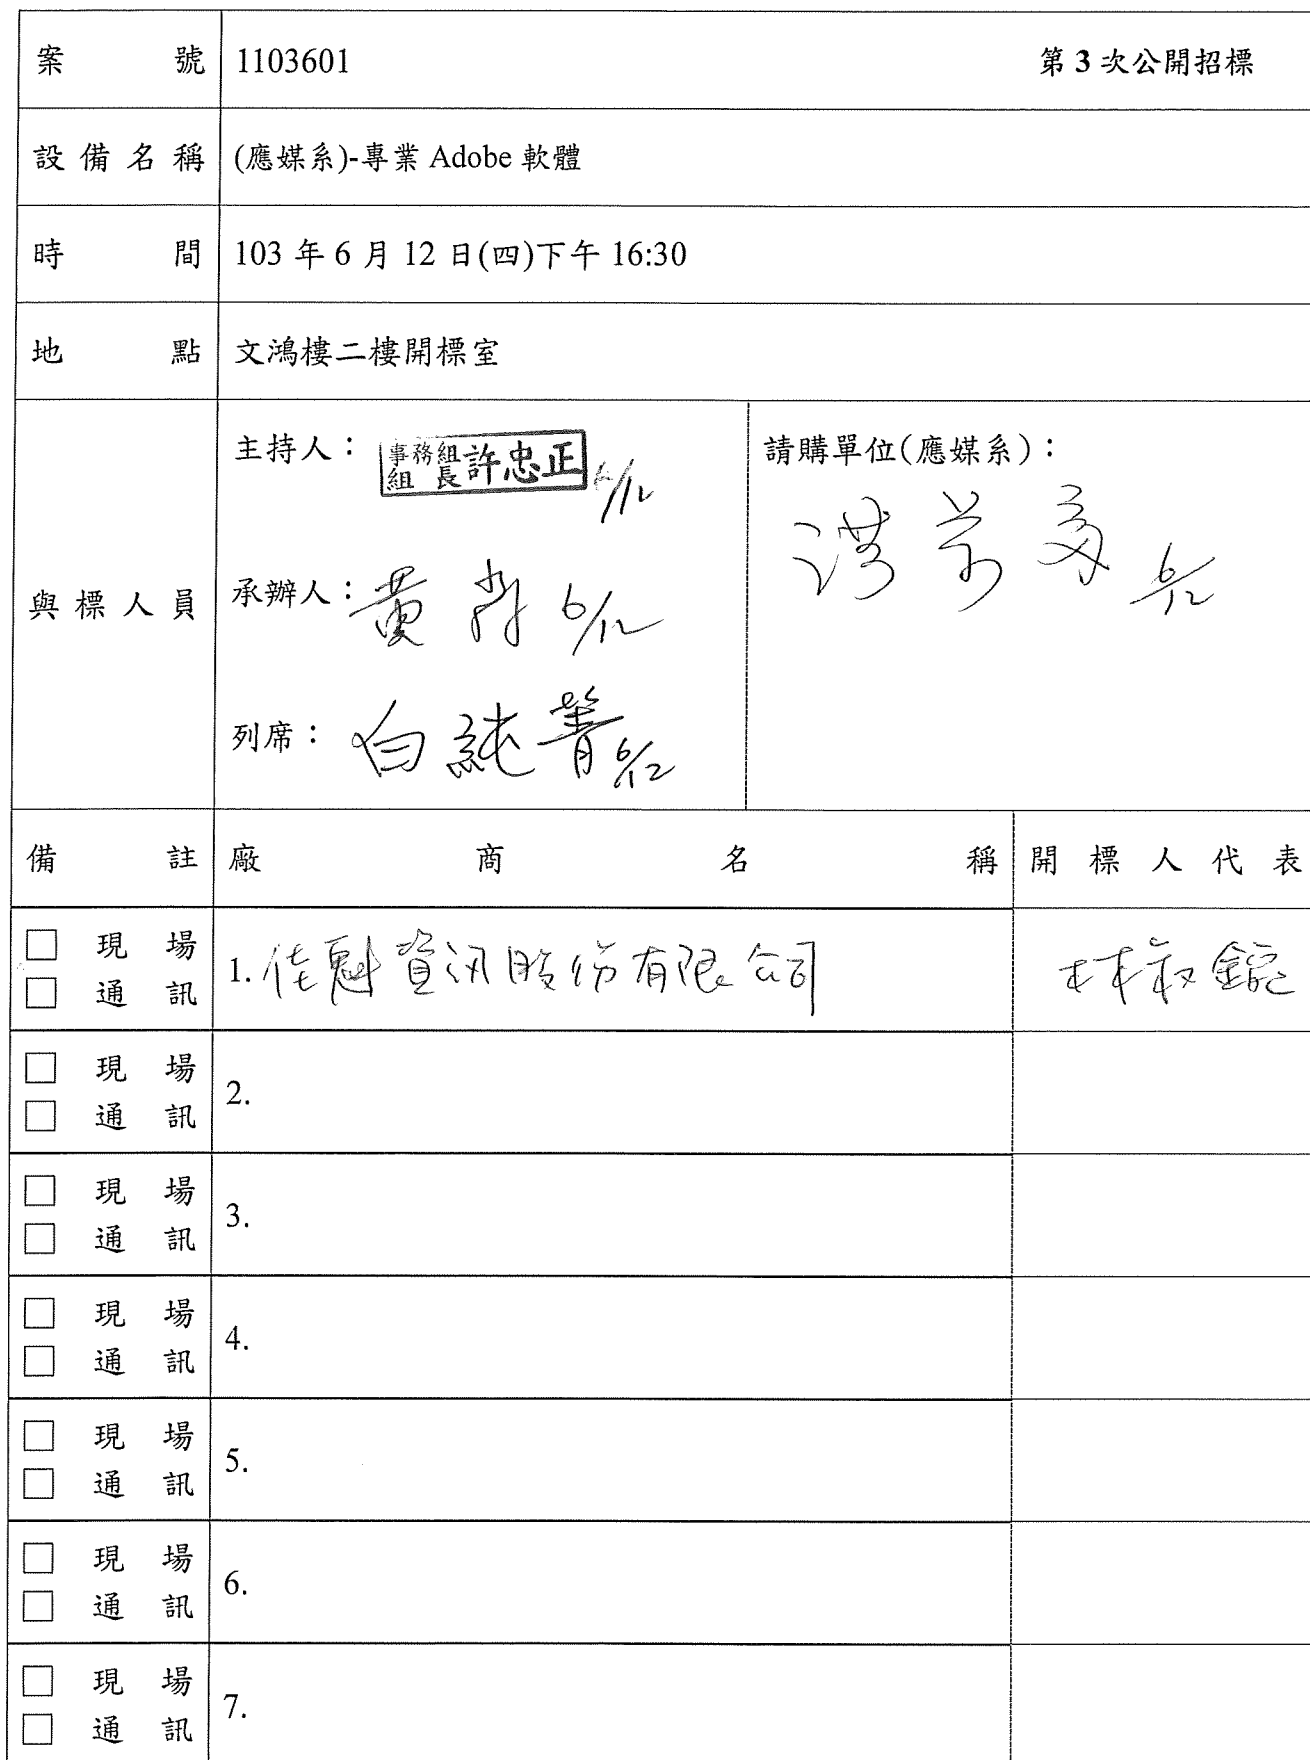 案號 1103601 第3次公開招標
設備名稱 (應媒系)-專業 Adobe 軟體
時間 103 年 6 月 12 日(四)下午 16:30
地點 文鴻樓二樓開標室
與標人員
主持人：事務組組長許忠正 6/12
承辦人：黃 6/12
列席：白純菁 6/12
請購單位(應媒系)：
洪 6/12
備註 廠商名稱 開標人代表
□ 現場
□ 通訊
1. 佳魁資訊股份有限公司 林
□ 現場
□ 通訊
2.
□ 現場
□ 通訊
3.
□ 現場
□ 通訊
4.
□ 現場
□ 通訊
5.
□ 現場
□ 通訊
6.
□ 現場
□ 通訊
7.